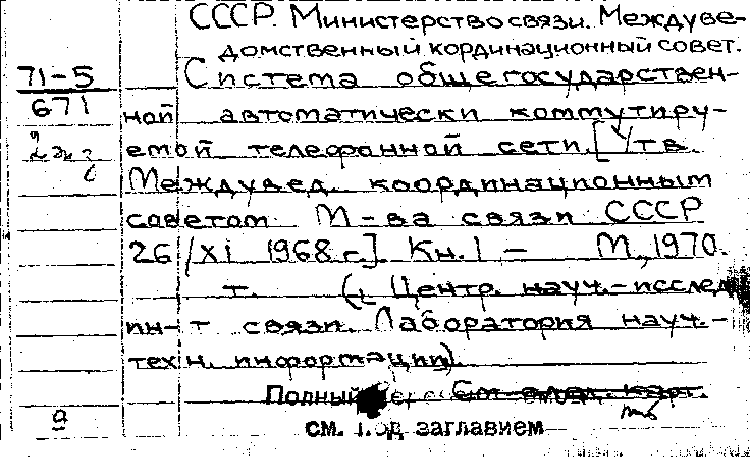 СССР. Министерство связи. Междуве-
домственный кординационный совет.
71-5
Система общегосударствен-
671
ной автоматически коммутиру-
2эк
емой телефонной сети. [Утв.
Междувед. координационным
советом М-ва связи СССР
26/XI 1968 г.]. Кн. 1 — М., 1970.
т. (Центр. науч.-исслед.
ин-т связи. Лаборатория науч.-
техн. информации).
Полный См. след. карт.
а
см. под заглавием